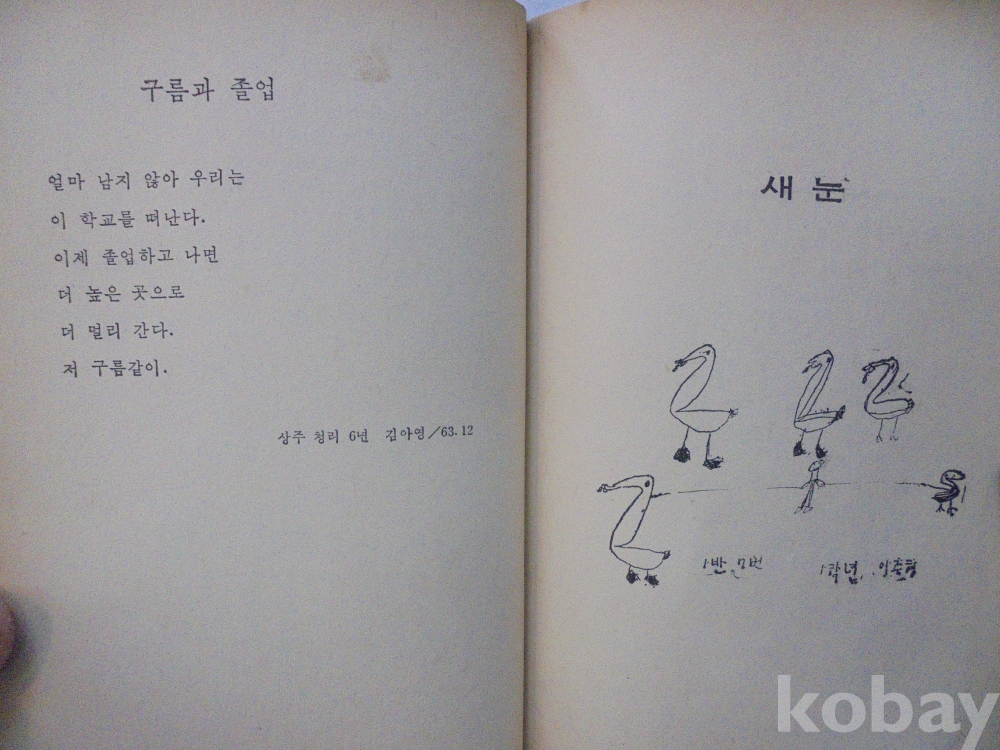 구름과 졸업
얼마 남지 않아 우리는
이 학교를 떠난다.
이제 졸업하고 나면
더 높은 곳으로
더 멀리 간다.
저 구름같이.
상주 청리 6년 김아영/63.12
새 눈
1반 7번
1학년,
kobay